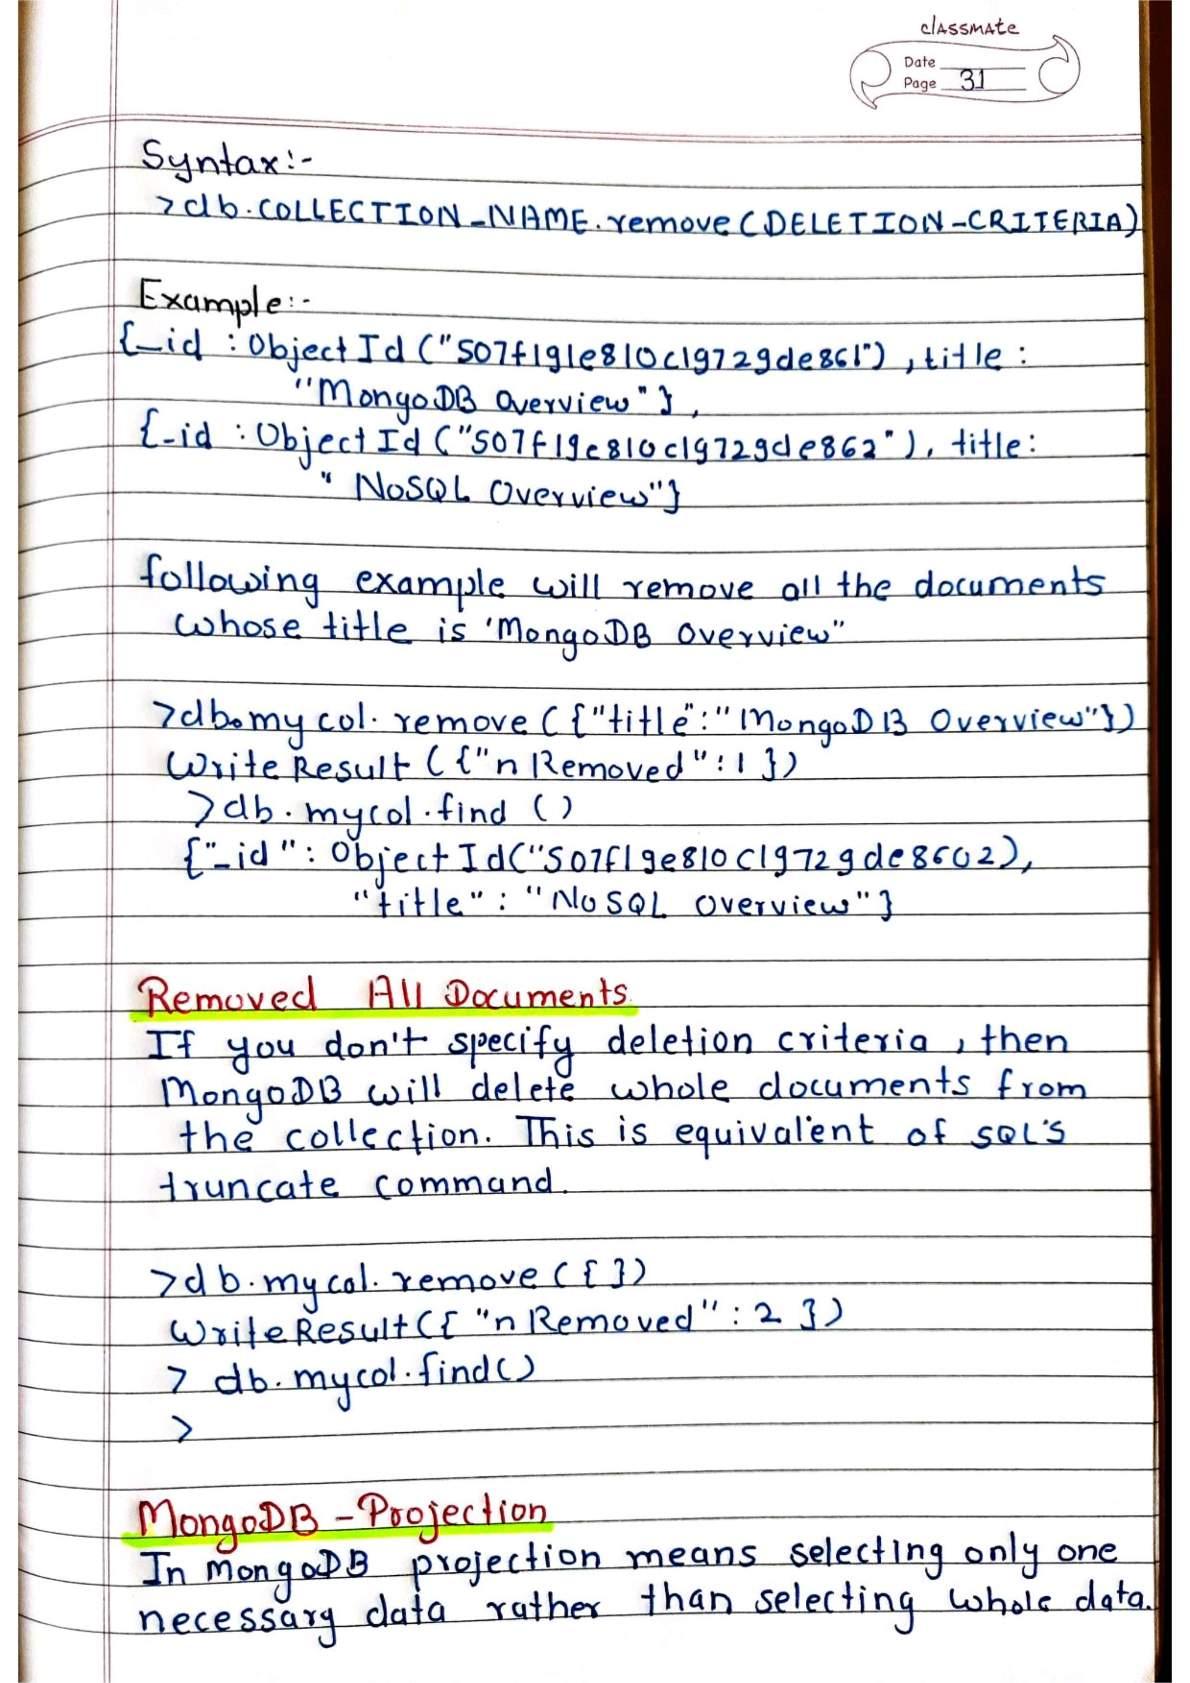 classmate
Date
Page 31
Syntax:-
>db.COLLECTION_NAME.remove(DELETION-CRITERIA)
Example:-
{_id : ObjectId("507f191e810c19729de861"), title :
"MongoDB Overview"},
{-id : ObjectId("507f19e810c19729de862"), title:
" NoSQL Overview"}
following example will remove all the documents
whose title is 'MongoDB Overview"
>db.mycol.remove({"title":"MongoDB Overview"})
WriteResult({"nRemoved":1})
>db.mycol.find()
{"_id": ObjectId("507f19e810c19729de8602),
"title": "NoSQL Overview"}
Removed All Documents
If you don't specify deletion criteria, then
MongoDB will delete whole documents from
the collection. This is equivalent of SQL's
truncate command.
>db.mycol.remove({})
WriteResult({ "nRemoved": 2 })
> db.mycol.find()
>
MongoDB - Projection
In MongoDB projection means selecting only one
necessary data rather than selecting whole data.